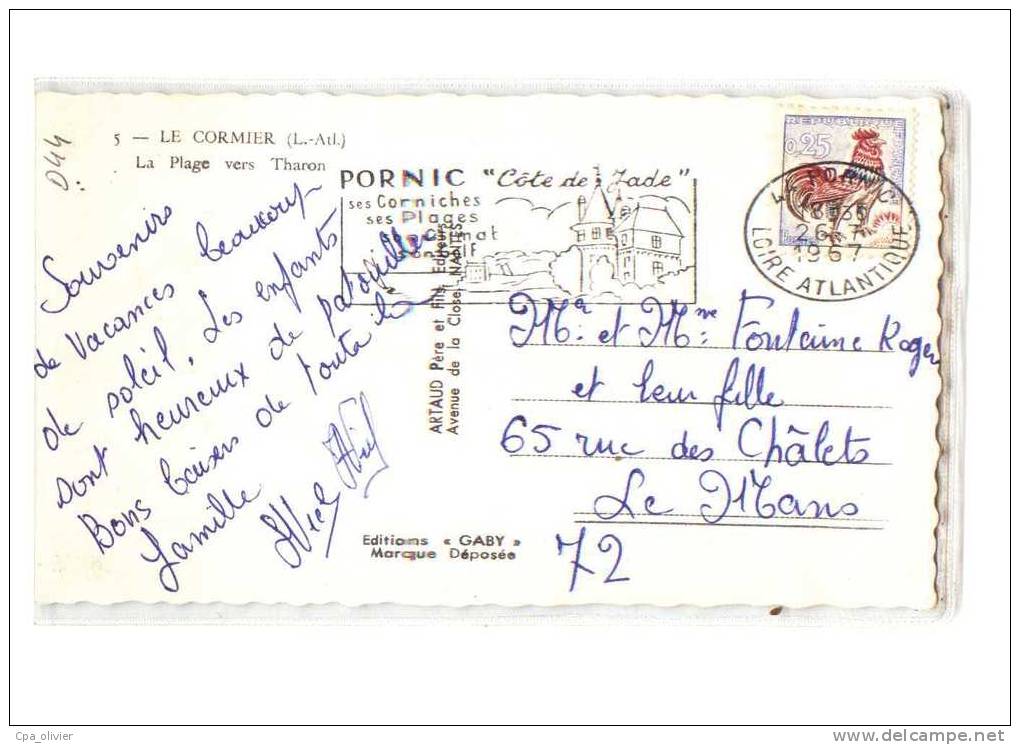 D44
5 — LE CORMIER (L.-Atl.)
La Plage vers Tharon
PORNIC "Côte de Jade"
ses Corniches
ses Plages
REPUBLIQUE
0,25
PORNIC
26-7
1967
LOIRE ATLANTIQUE
Souvenirs
de vacances beaucoup
de soleil, Les enfants
sont heureux de patouiller
Bons baisers de toute la
famille
ARTAUD Père et Fils, Editeurs
Avenue de la Close, NANTES
Editions « GABY »
Marque Déposée
Mr et Mme Fontaine Roger
et leur fille
65 rue des Châlets
Le Mans
72
Cpa_olivier
www.delcampe.net